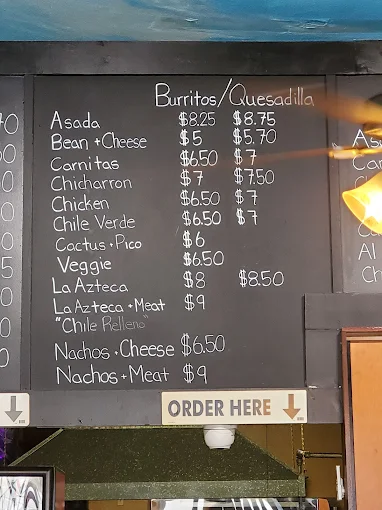 Burritos/Quesadilla
Asada $8.25 $8.75
Bean + Cheese $5 $5.70
Carnitas $6.50 $7
Chicharron $7 $7.50
Chicken $6.50 $7
Chile Verde $6.50 $7
Cactus + Pico $6
Veggie $6.50
La Azteca $8 $8.50
La Azteca + Meat $9
"Chile Relleno"
Nachos + Cheese $6.50
Nachos + Meat $9
ORDER HERE